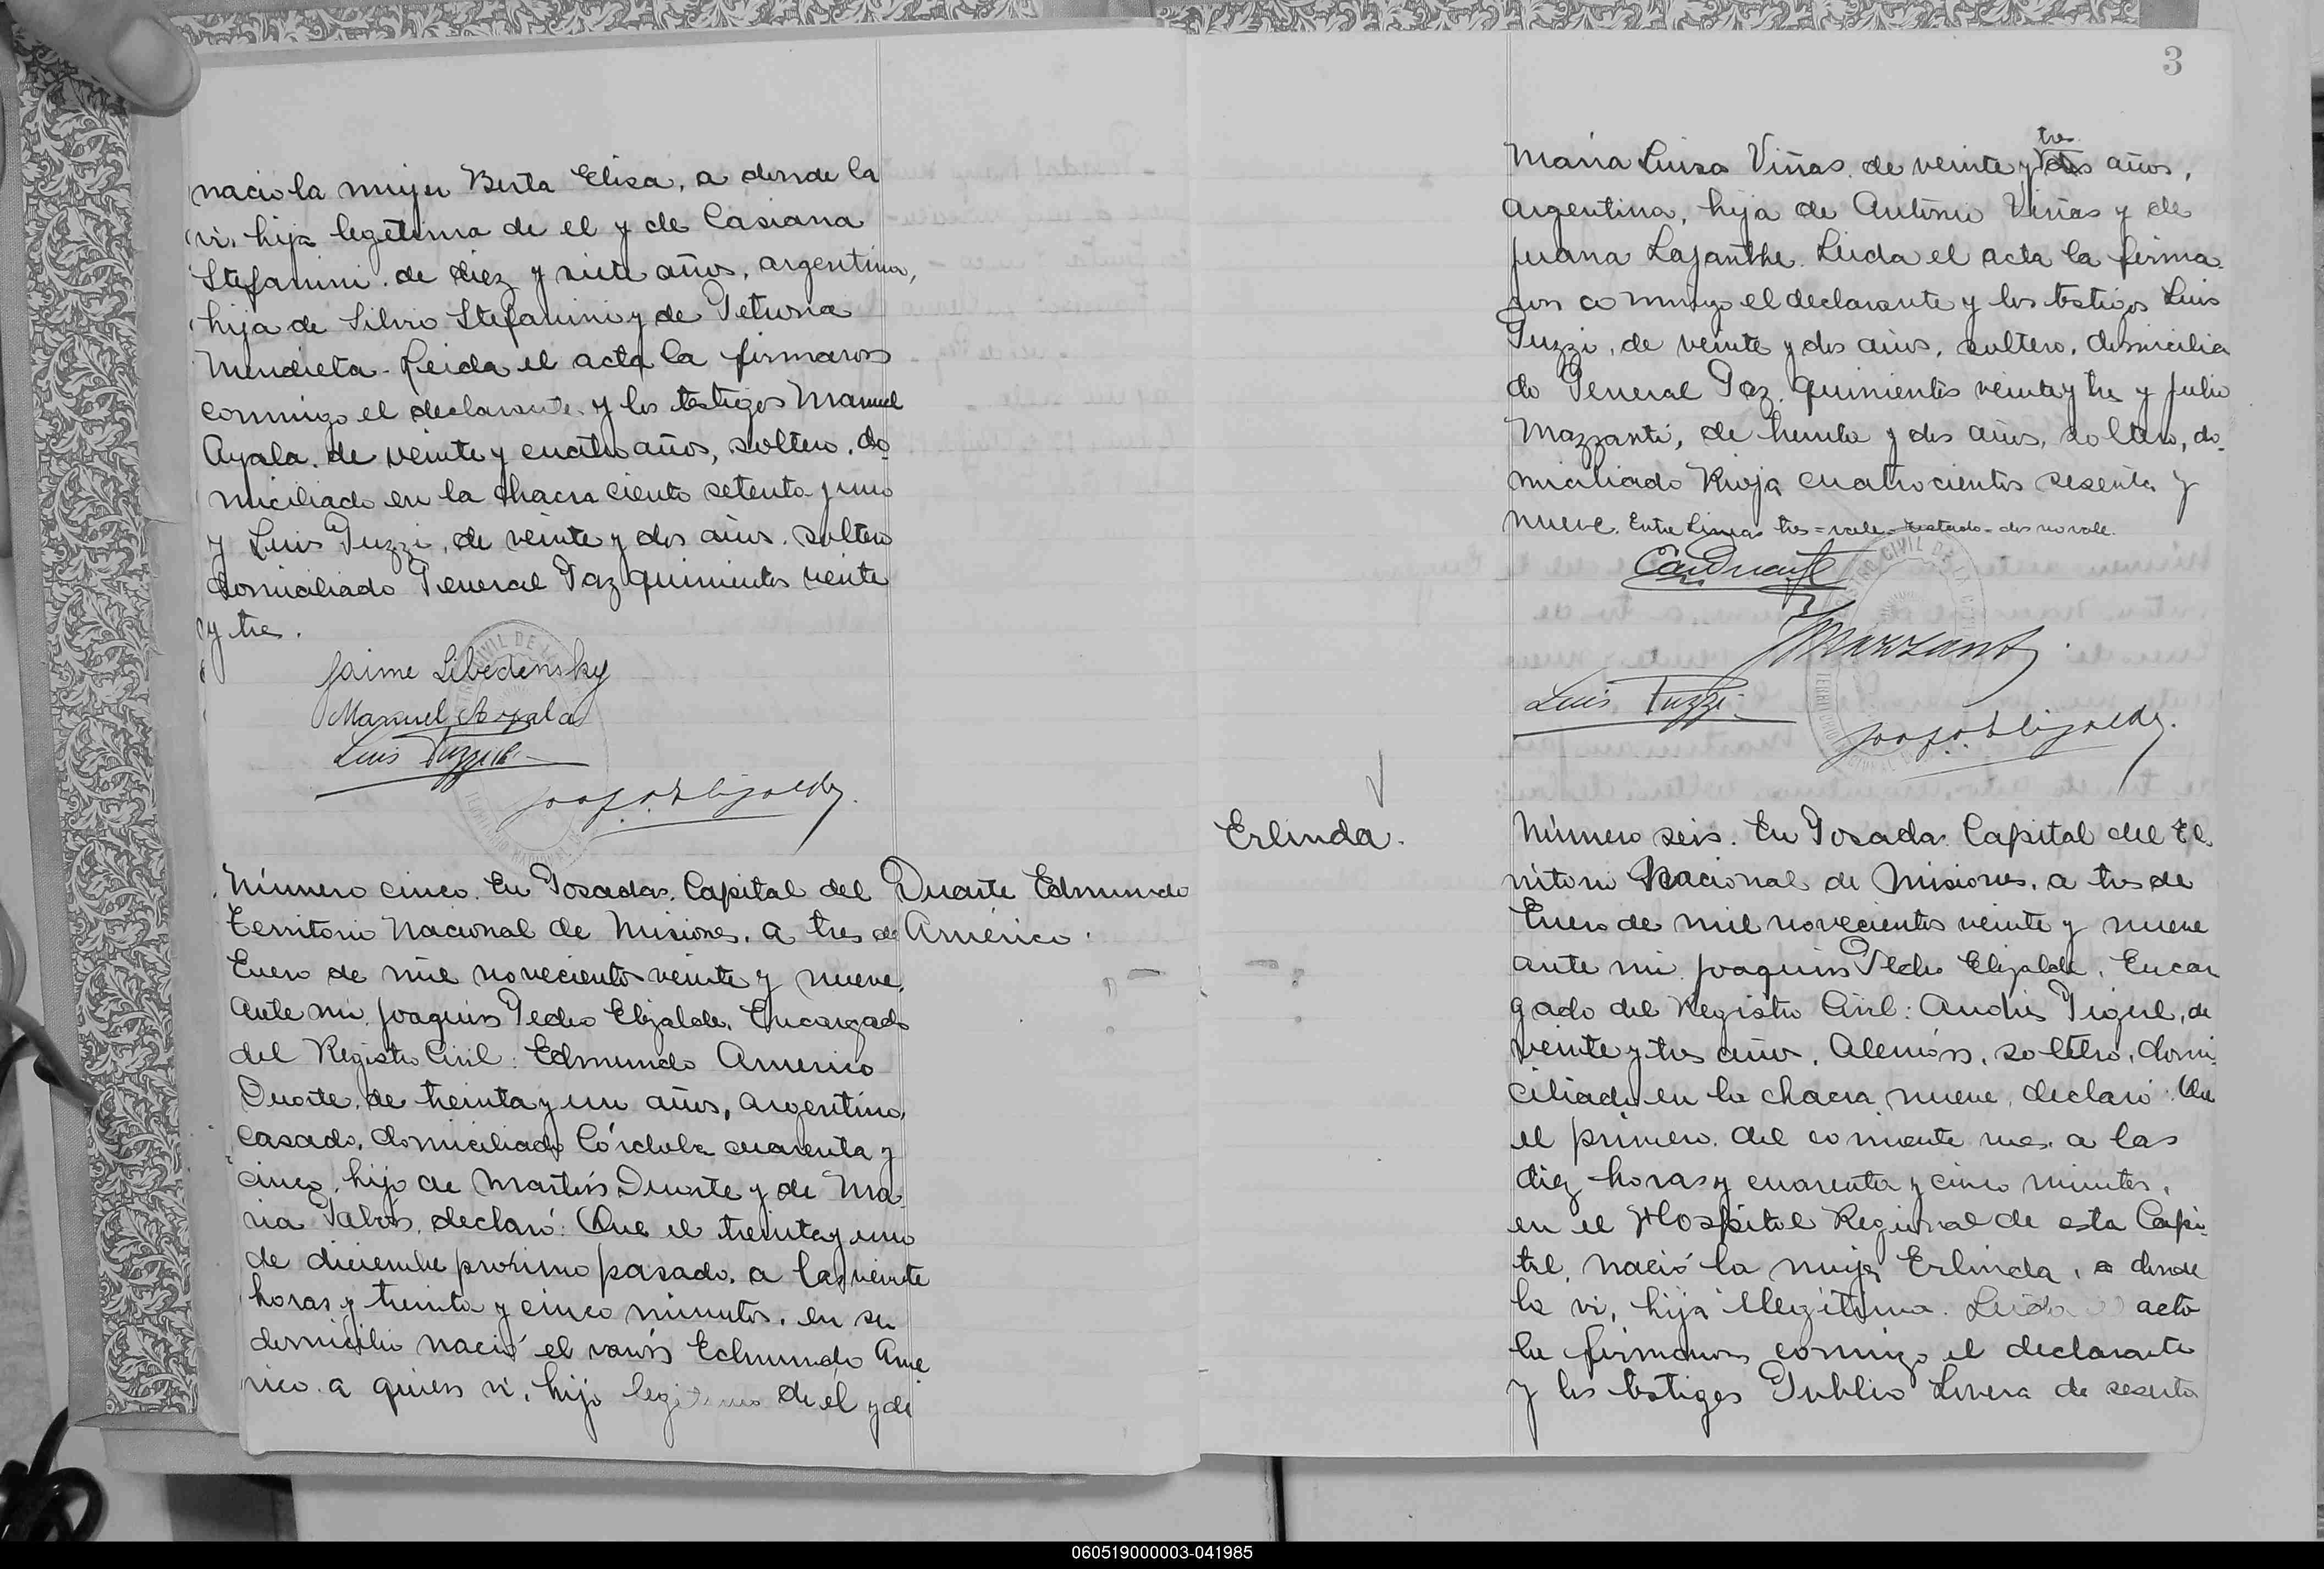 nacio la mujer Berta Elisa, a donde la
vi, hija legitima de el y de Casiana
Stefanini. de diez y siete años, argentina,
hija de Silvio Stefanini y de Petrona
Mendieta. Leida el acta la firmaron
conmigo el declarante y los testigos Manuel
Ayala. de veinte y cuatro años, soltero. do
miciliado en la chacra ciento setenta y uno
y Luis Puzzi, de veinte y dos años. soltero
domiciliado General Paz quinientos veinte
y tres.
Jaime Libedensky
Manuel Ayala
Luis Puzzi
Número cinco. En Posadas. Capital del
Territorio Nacional de Misiones. a tres de
Enero de mil novecientos veinte y nueve.
ante mi. Joaquin Pedro Elizalde. Encargado
del Registro Civil: Edmundo Americo
Duarte. de treinta y un años, argentino,
casado, domiciliado Córdoba cuarenta y
cinco. hijo de Martín Duarte y de Ma
ria declaró: Que el treinta y uno
de diciembre proximo pasado. a las veinte
horas y treinta y cinco minutos. en su
domicilio nació el varón Edmundo Ame
rico. a quien vi, hijo legitimo de él y de
Duarte Edmundo
Américo.
3
tres
María Luisa Viñas. de veinte y dos años,
argentina, hija de Antonio Viñas y de
Juana Leida el acta la firma
ron co migo el declarante y los testigos Luis
Puzzi, de veinte y dos años, soltero. domicilia
do General Paz. quinientos veinte y tres y Julio
Mazzanti, de treinta y dos años, soltero, do
miciliado Rioja cuatrocientos sesenta y
nueve. Entre Lineas tres = vale = testado = dos no vale.
Luis Puzzi
Erlinda.
Número seis. En Posada. Capital del Te
rritorio Nacional de Misiones. a tres de
Enero de mil novecientos veinte y nueve
ante mi. Joaquin Pedro Elizalde. Encar
gado del Registro Civil: Andrés de
veinte y tres años. Alemán, soltero, domi
ciliado en la chacra nueve, declaró: Que
el primero. del corriente mes. a las
diez horas y cuarenta y cinco minutos,
en el Hospital Regional de esta Capi
tal, nació la mujer Erlinda, a donde
la vi, hija Ilegítima. Leida acta
la firmaron conmigo el declarante
y los testigos Publio Lovera de sesenta
060519000003-041985